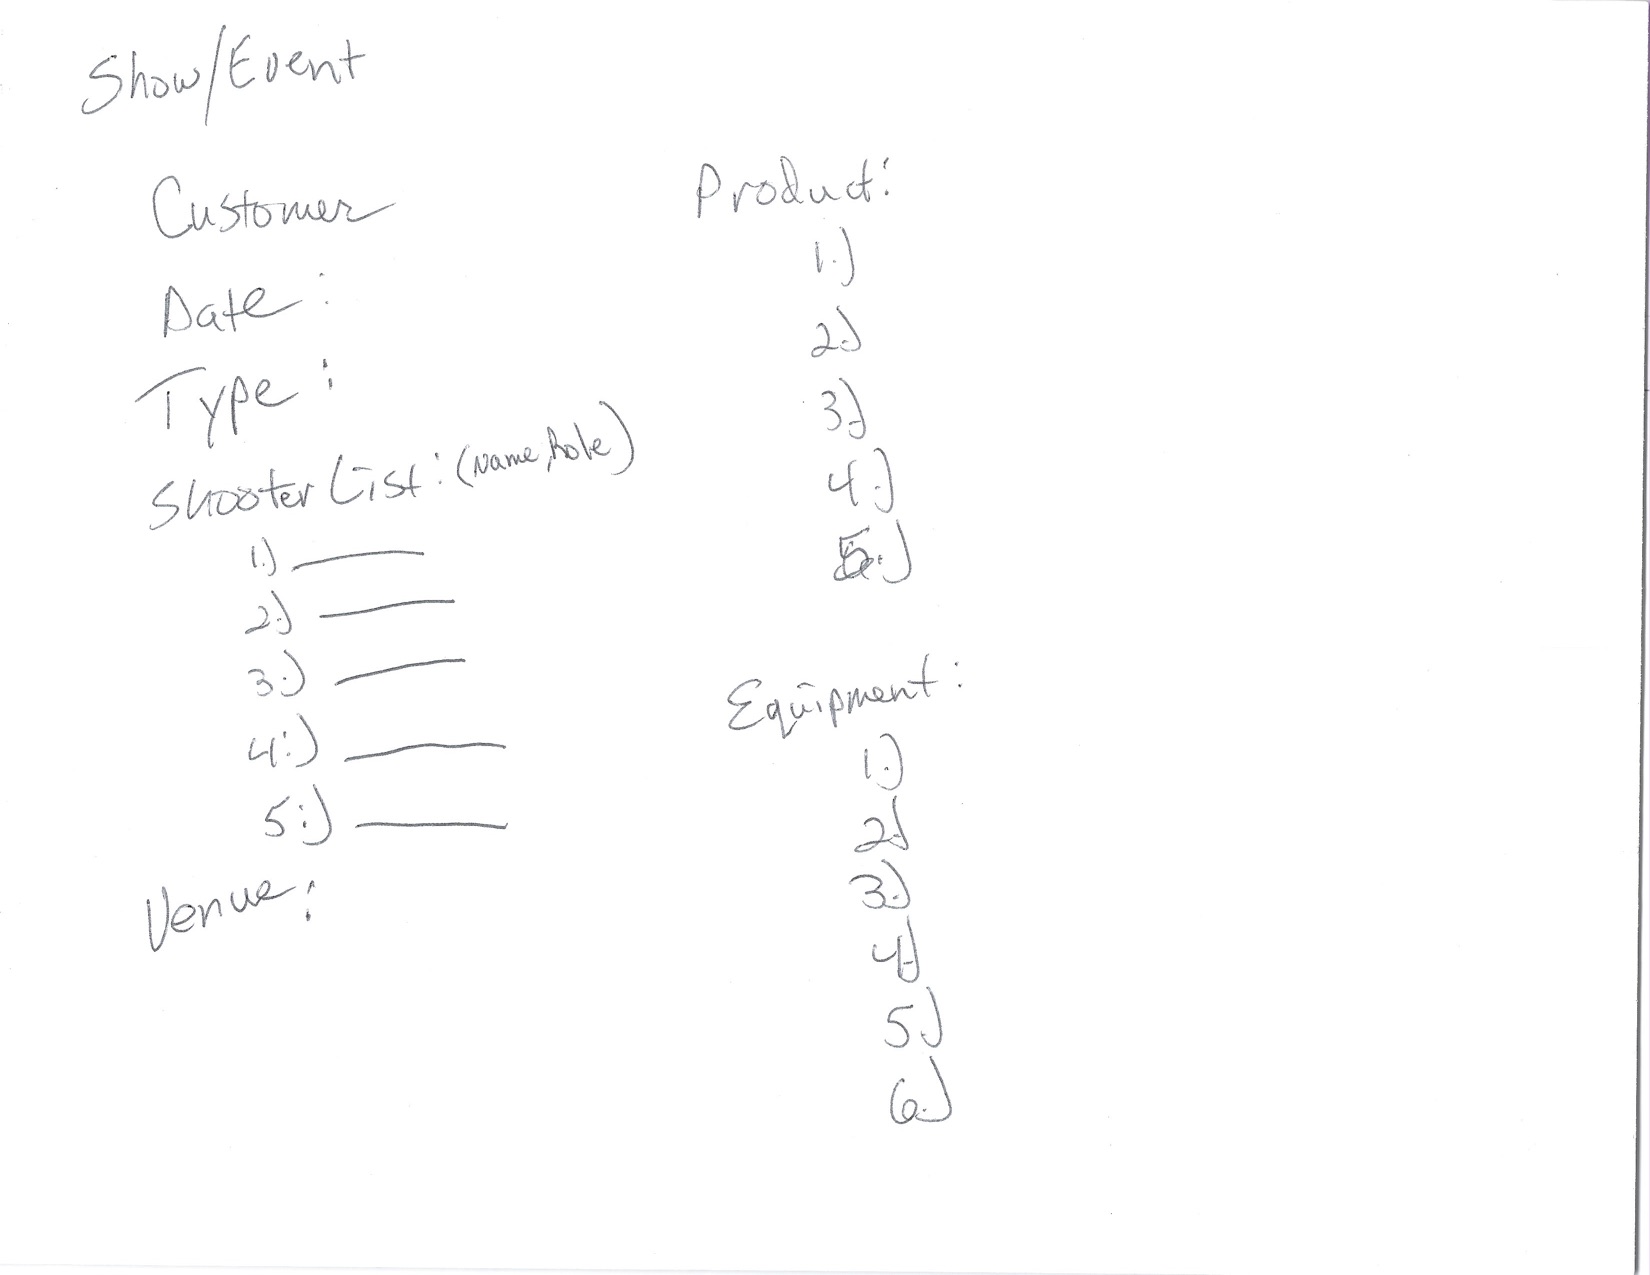 Show/Event
Customer
Date:
Type:
Shooter List: (Name, Role)
1.)
2.)
3.)
4.)
5.)
Venue:
Product:
1.)
2.)
3.)
4.)
5.)
Equipment:
1.)
2.)
3.)
4.)
5.)
6.)